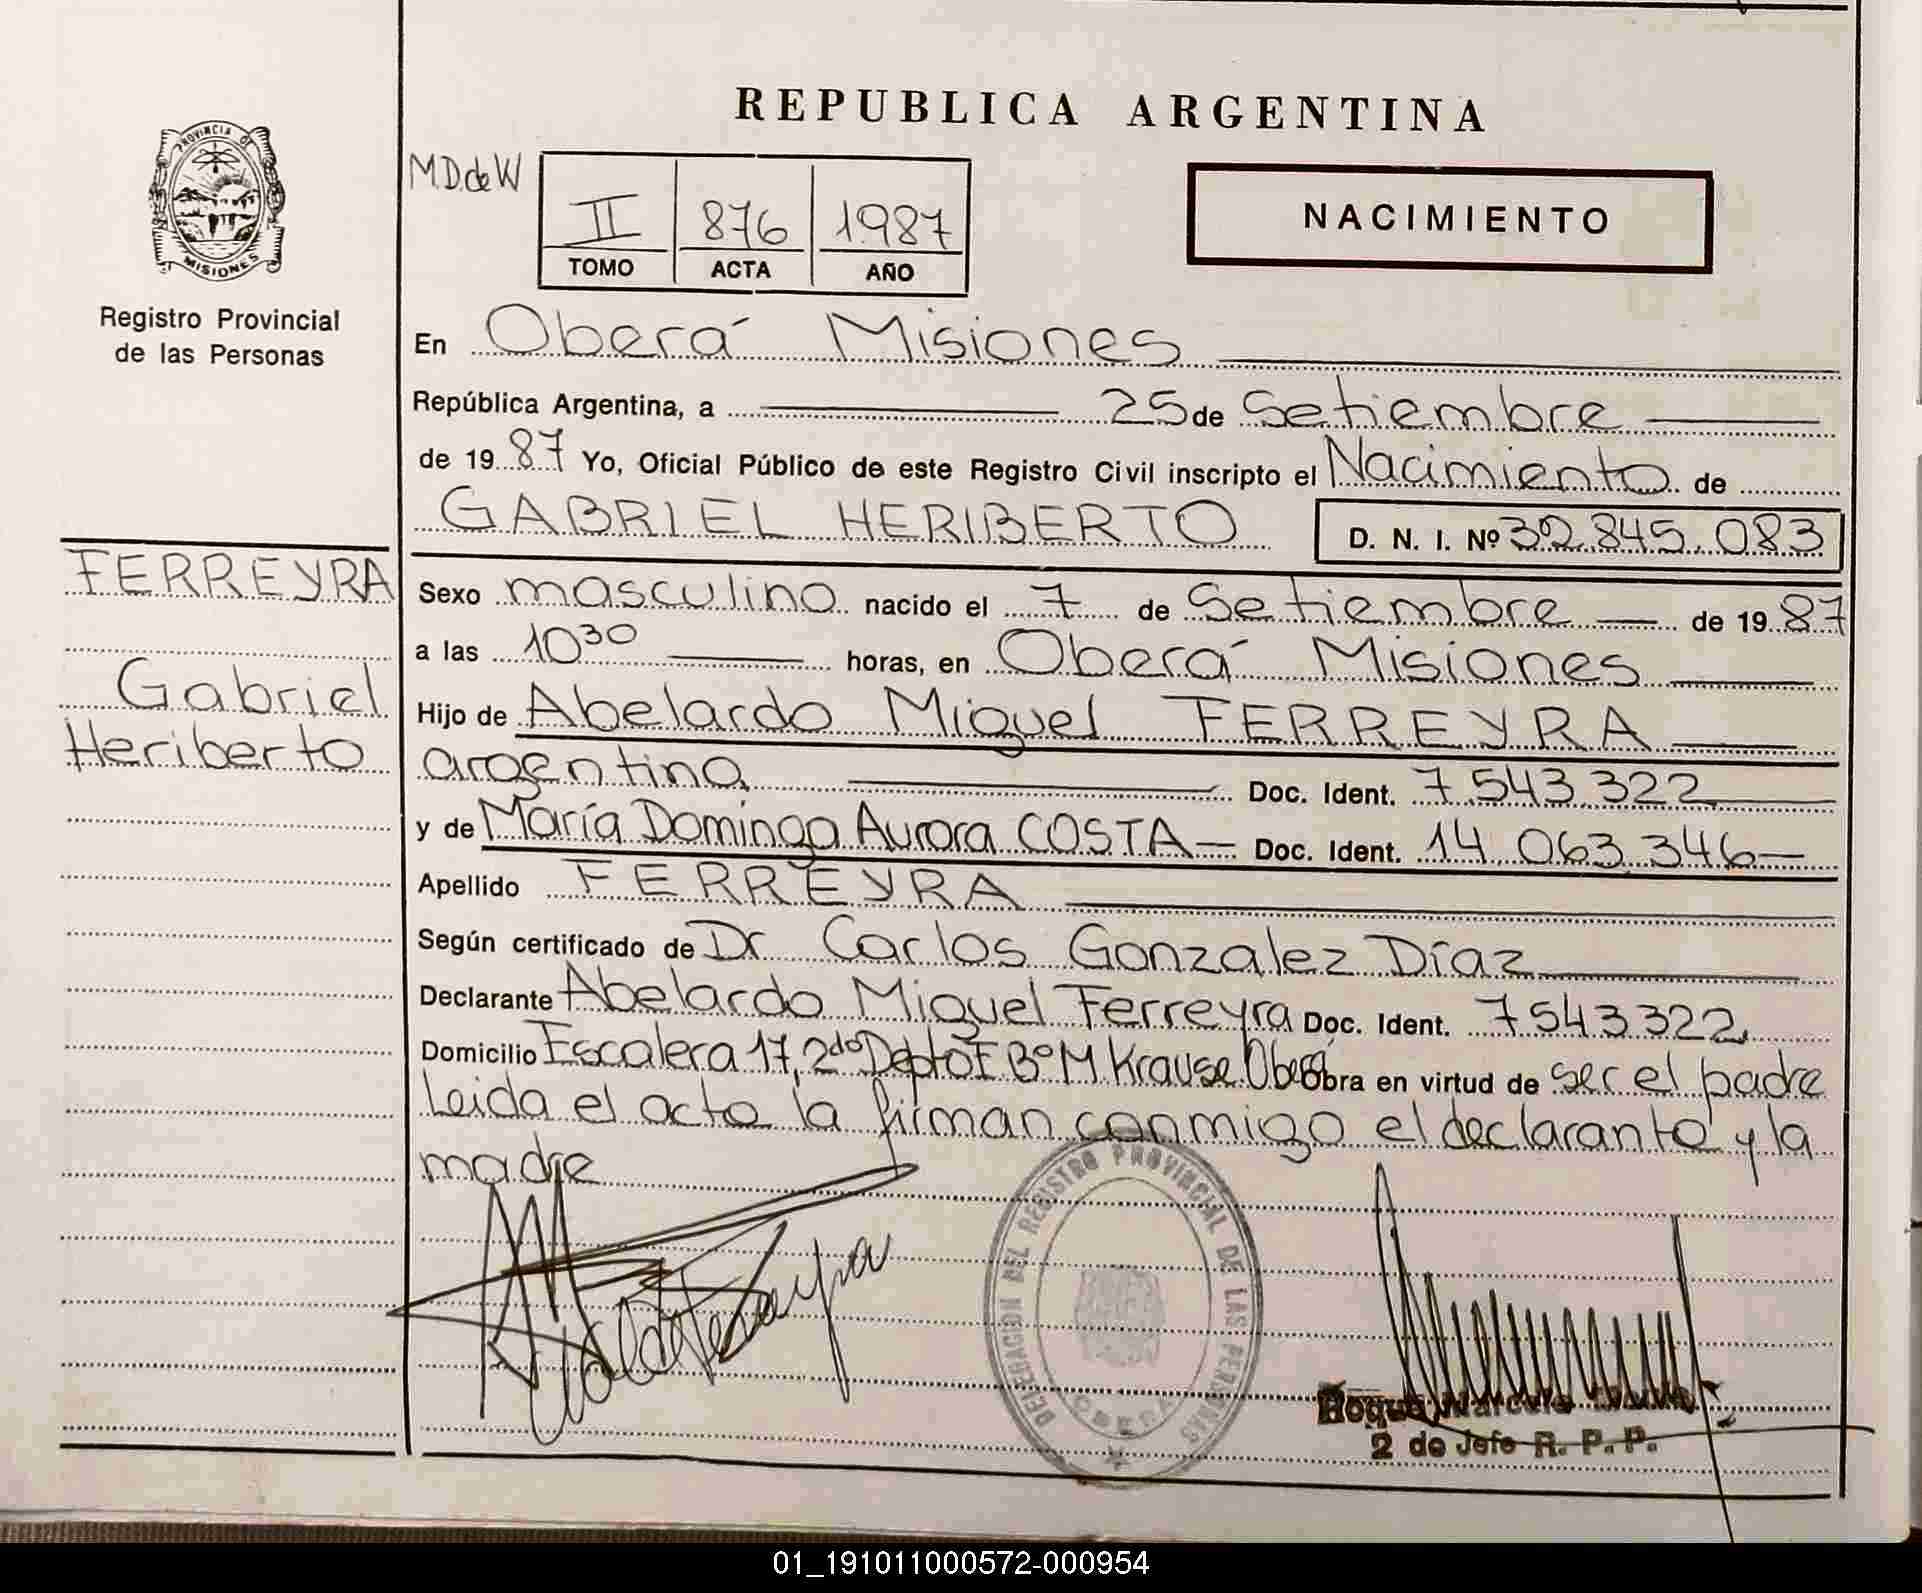 REPUBLICA ARGENTINA
PROVINCIA DE
MISIONES
Registro Provincial
de las Personas
M.D.de W
II 876 1987
TOMO ACTA AÑO
NACIMIENTO
En Oberá Misiones
República Argentina, a 25 de Setiembre
de 1987 Yo, Oficial Público de este Registro Civil inscripto el Nacimiento de
GABRIEL HERIBERTO D. N. I. Nº 32.845.083
FERREYRA
Gabriel
Heriberto
Sexo masculino nacido el 7 de Setiembre de 1987
a las 10 30 horas, en Oberá Misiones
Hijo de Abelardo Miguel FERREYRA
argentina Doc. Ident. 7.543.322
y de María Dominga Aurora COSTA Doc. Ident. 14.063.346
Apellido FERREYRA
Según certificado de Dr Carlos Gonzalez Díaz
Declarante Abelardo Miguel Ferreyra Doc. Ident. 7.543.322
Domicilio Escalera 17, 2do Depto F Bº M Krause Oberá Obra en virtud de ser el padre
Leida el acta la firman conmigo el declarante y la
madre
DELEGACION DEL REGISTRO PROVINCIAL DE LAS PERSONAS
OBERA
Roque Marcelo
2 do Jefe R. P. P.
01_191011000572-000954